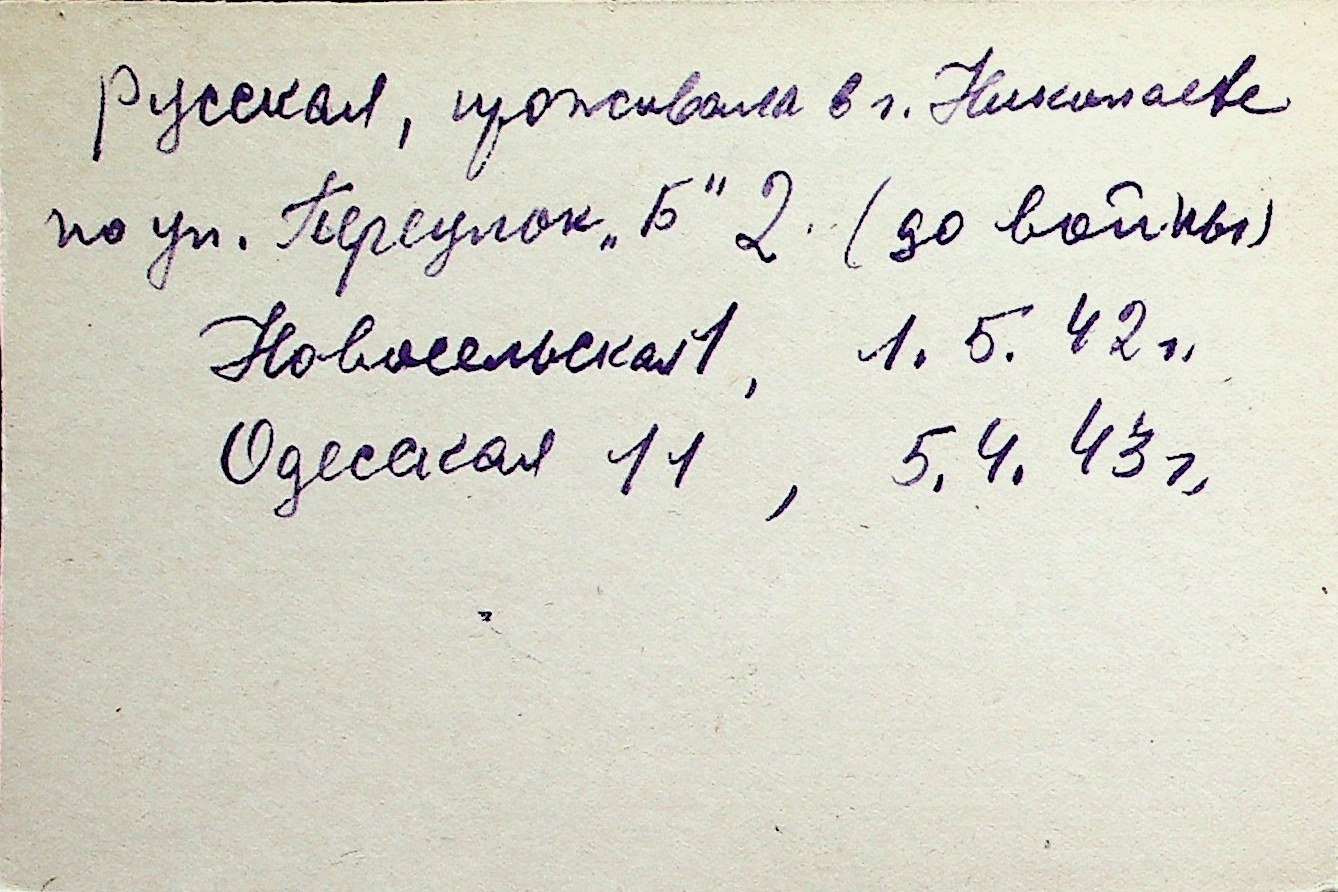 русская, проживала в г. Николаеве
по ул. Переулок „Б" 2. (до войны)
Новосельская 1, 1. 5. 42 г.
Одесская 11, 5. 4. 43 г.